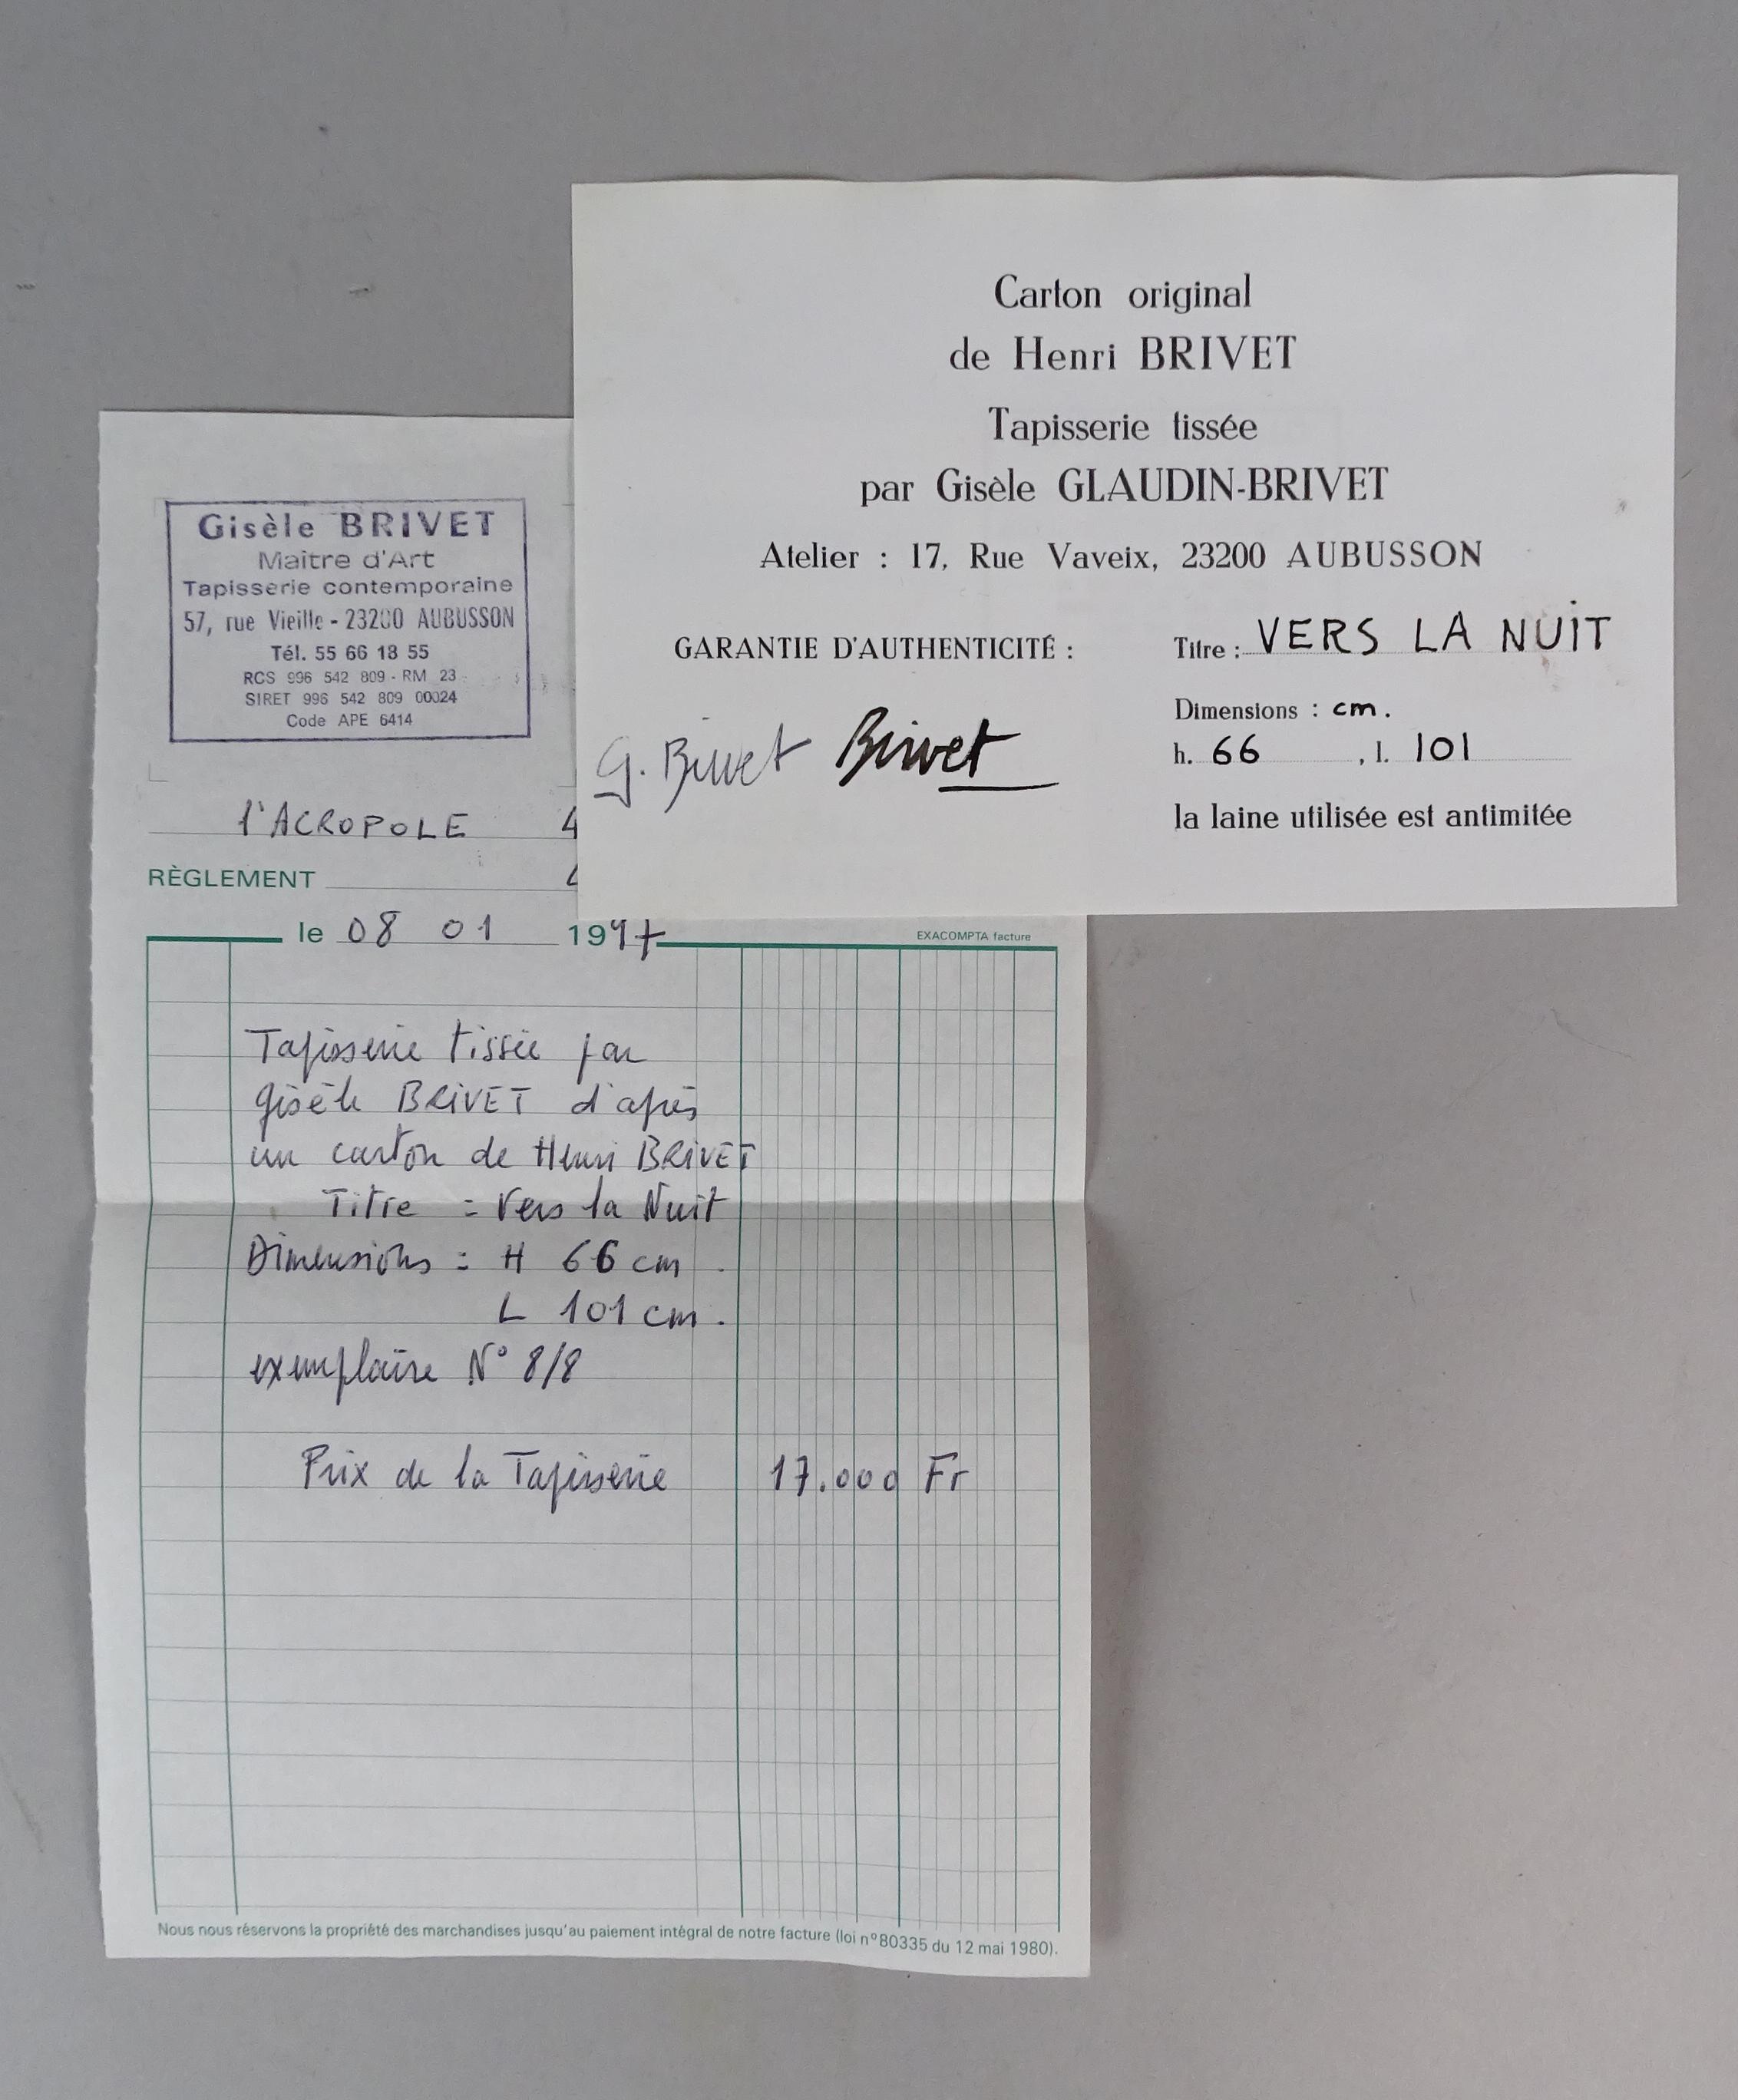 Carton original
de Henri BRIVET
Tapisserie tissée
par Gisèle GLAUDIN-BRIVET
Atelier : 17, Rue Vaveix, 23200 AUBUSSON
GARANTIE D'AUTHENTICITÉ :
G. Brivet Brivet
Titre : VERS LA NUIT
Dimensions : cm.
h. 66 , l. 101
la laine utilisée est antimitée
Gisèle BRIVET
Maître d'Art
Tapisserie contemporaine
57, rue Vieille - 23200 AUBUSSON
Tél. 55 66 18 55
RCS 996 542 809 - RM 23
SIRET 996 542 809 00024
Code APE 6414
l'ACROPOLE
RÈGLEMENT
le 08 01 1997
EXACOMPTA facture
Tapisserie tissée par
Gisèle BRIVET d'après
un carton de Henri BRIVET
Titre = Vers la Nuit
Dimensions = H 66 cm .
L 101 cm .
exemplaire N° 8/8
Prix de la Tapisserie 17.000 Fr
Nous nous réservons la propriété des marchandises jusqu'au paiement intégral de notre facture (loi n°80335 du 12 mai 1980).